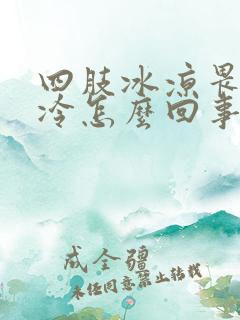 四肢冰凉畏
冷怎麽回事
成全疆
未经同意禁止转载